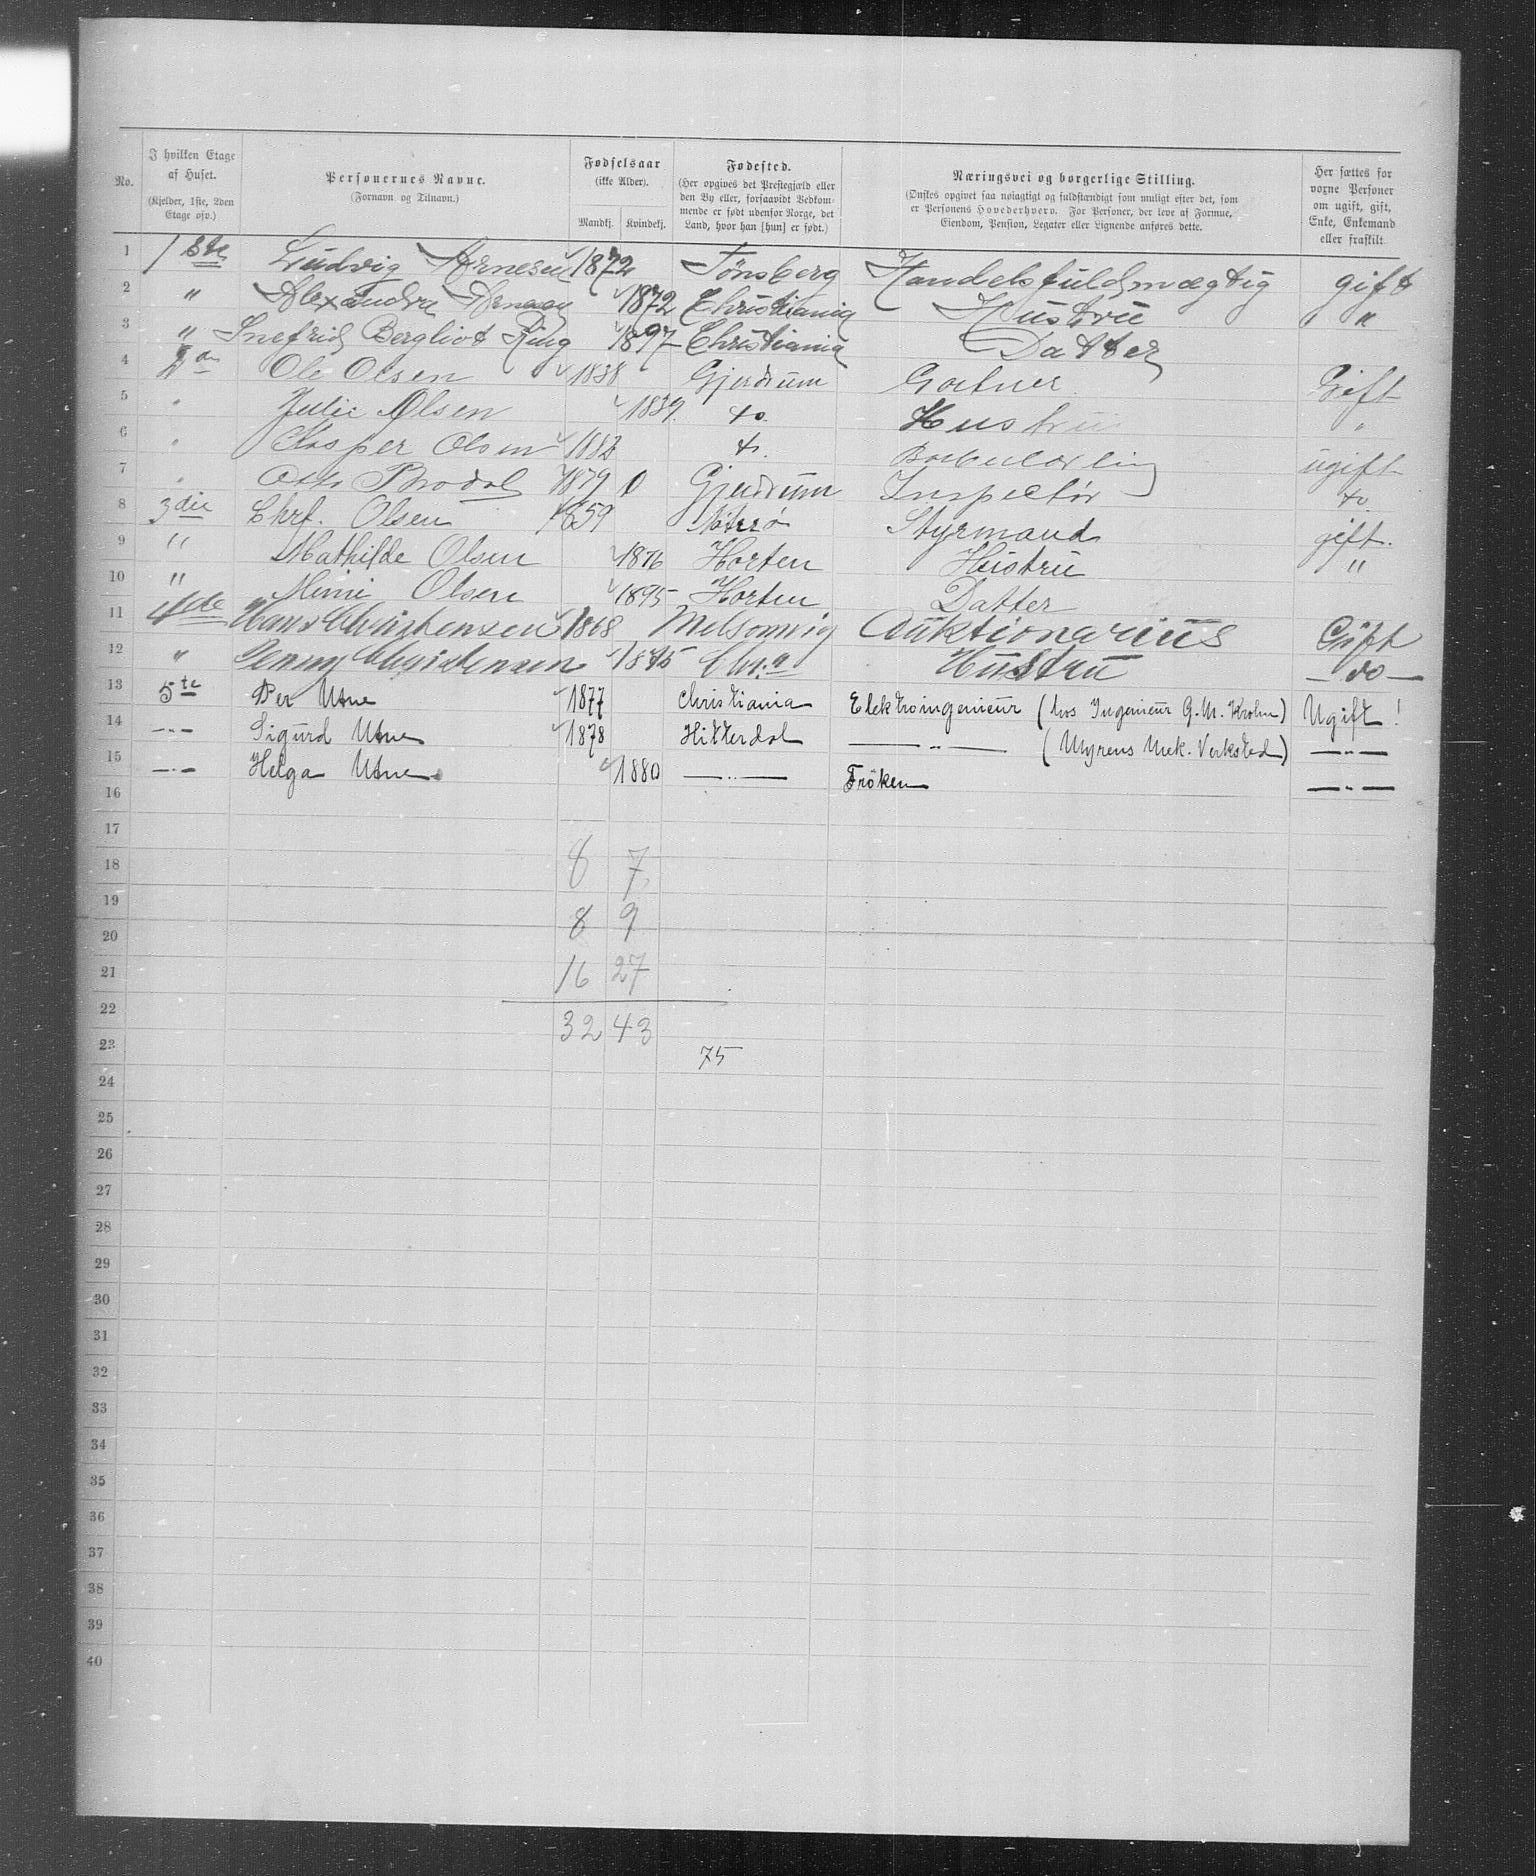 No.
I hvilken Etage af Huset. (Kjelder, 1ste, 2den Etage osv.)
Personernes Navne. (Fornavn og Tilnavn.)
Fødselsaar (ikke Alder). Mandkj. Kvindekj.
Fødested. (Her opgives det Præstegjæld eller den By eller, forsaavidt Vedkommende er født udenfor Norge, det Land, hvor han [hun] er født.)
Næringsvei og borgerlige Stilling. (Ønskes opgivet saa nøiagtigt og fuldstændigt som muligt efter det, som er Personens Hovederhverv. For Personer, der leve af Formue, Eiendom, Pension, Legater eller Lignende anføres dette.
Her sættes for voxne Personer om ugift, gift, Enke, Enkemand eller fraskilt.
1 1ste Ludvig Arnesen 1872 Tönsberg Handelsfuldmægtig gift
2 " Alexandra Arnesen 1872 Christiania Hustru "
3 " Snefrid Bergliot Ring 1897 Christiania Datter
4 Ole Olsen 1838 Gjerdrum Gartner Gift
5 " Julie Olsen 1839 do. Hustru "
6 " Kasper Olsen 1882 do. ugift
7 " Otto Brodal 1879 0 Gjerdrum Inspectør do
8 3die Chrf. Olsen 1859 Nøterø Styrmand gift.
9 " Mathilde Olsen 1876 Horten Hustru "
10 " Minni Olsen 1895 Horten Datter
11 4de Hans Christensen 1868 Melsomvig Auktionarius Gift
12 " Jenny Christensen 1875 Chr.a Hustru — do —
13 5te Per Utne 1877 Christiania Elektroingenieur (hos Ingenieur G.M. Krohn) Ugift!
14 —"— Sigurd Utne 1878 Hitterdal —"— (Myrens Mek. Verksted) —"—
15 —"— Helga Utne 1880 —"— Fröken —"—
16
17
18 8 7
19
20 8 9
21 16 27
22
23 32 43
75
24
25
26
27
28
29
30
31
32
33
34
35
36
37
38
39
40